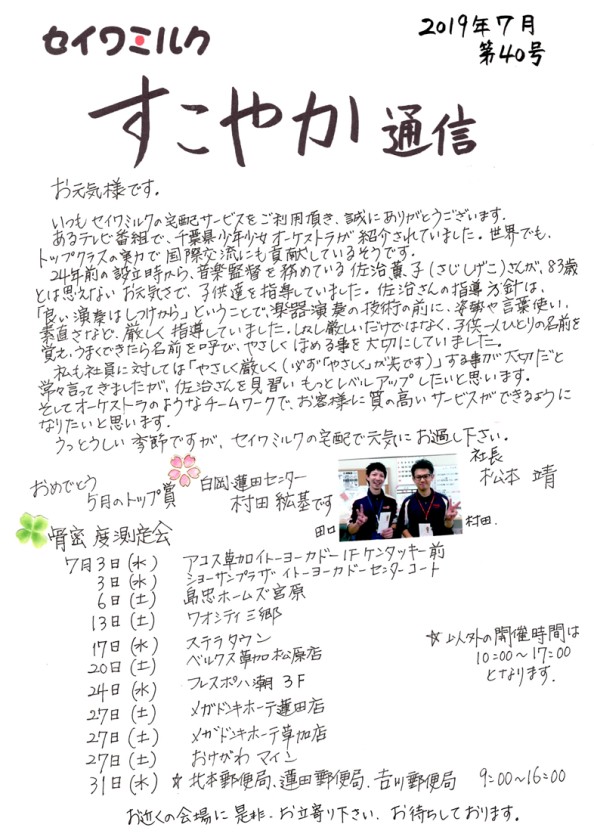 セイワミルク
2019年7月
第40号
すこやか通信
お元気様です。
いつもセイワミルクの宅配サービスをご利用頂き、誠にありがとうございます。
あるテレビ番組で、千葉県少年少女オーケストラが紹介されていました。世界でも、
トップクラスの実力で国際交流にも貢献しているそうです。
24年前の設立時から、音楽監督を務めている佐治薫子(さじしげこ)さんが、83歳
とは思えないお元気さで、子供達を指導していました。佐治さんの指導方針は、
「良い演奏はしつけから」ということで、楽器演奏の技術の前に、姿勢や言葉使い、
素直さなど、厳しく指導していました。しかし厳しいだけではなく、子供一人ひとりの名前を
覚え、うまくできたら名前を呼び、やさしくほめる事を大切にしていました。
私も社員に対しては「やさしく厳しく(必ず「やさしく」が先です)」する事が大切だと
常々言ってきましたが、佐治さんを見習いもっとレベルアップしたいと思います。
そしてオーケストラのようなチームワークで、お客様に質の高いサービスができるように
なりたいと思います。
うっとうしい季節ですが、セイワミルクの宅配で元気にお過し下さい。
社長
松本 靖
おめでとう
5月のトップ賞
白岡・蓮田センター
村田紘基です
田口
村田.
骨密度測定会
7月3日(水) アコス草加イトーヨーカドー1Fケンタッキー前
3日(水) ショーサンプラザ イトーヨーカドーセンターコート
6日(土) 島忠ホームズ宮原
13日(土) ワオシティ三郷
17日(水) ステラタウン
20日(土) ベルクス草加松原店
24日(水) フレスポ八潮 3F
27日(土) メガドンキホーテ蓮田店
27日(土) メガドンキホーテ草加店
27日(土) おけがわマイン
31日(水) ☆北本郵便局、蓮田郵便局、吉川郵便局 9:00〜16:00
☆以外の開催時間は
10:00〜17:00
となります.
お近くの会場に是非、お立寄り下さい、お待ちしております。